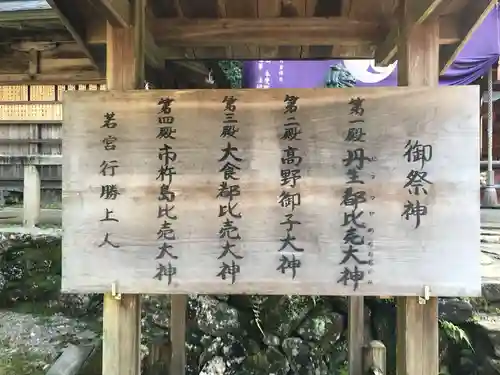 御祭神
第一殿 丹生都比売大神
第二殿 高野御子大神
第三殿 大食都比売大神
第四殿 市杵島比売大神
若宮 行勝上人